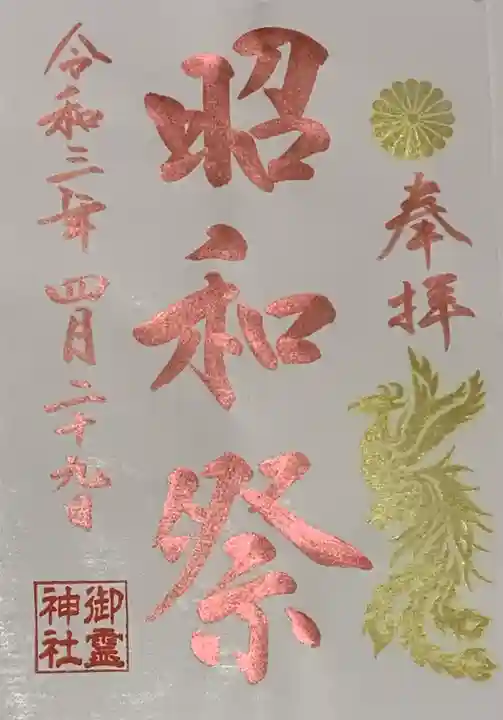 奉拝
昭和祭
令和三年四月二十九日
御霊
神社